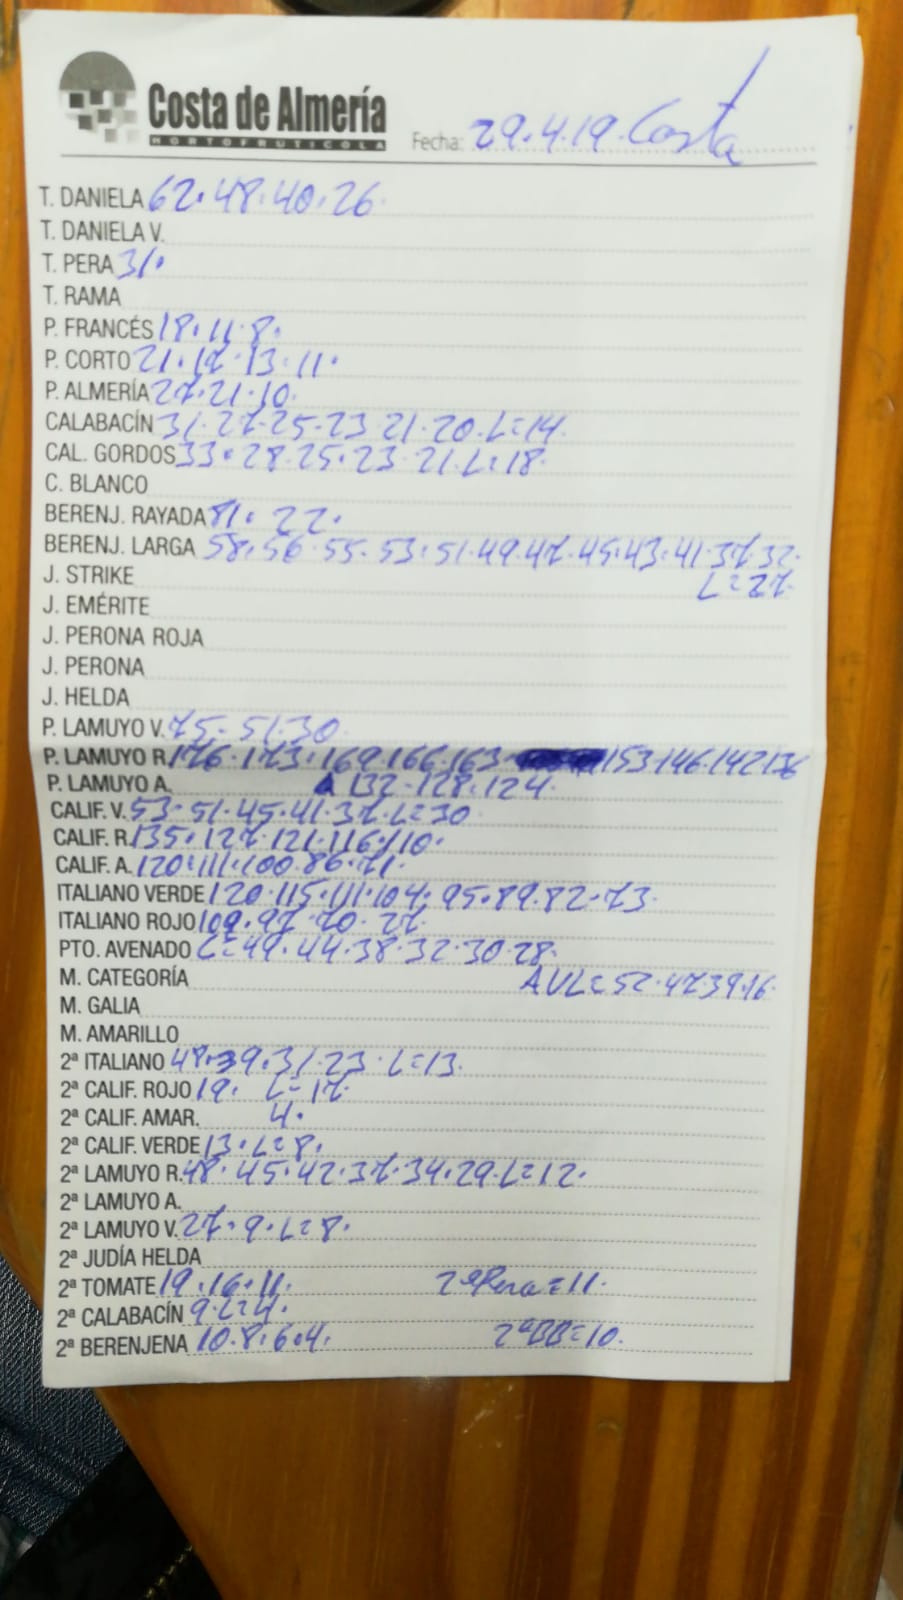 Costa de Almería
HORTOFRUTICOLA
Fecha: 29.4.19. Costa
T. DANIELA 62.48.40.26.
T. DANIELA V.
T. PERA 31.
T. RAMA
P. FRANCÉS 18.11.8.
P. CORTO 21.17.13.11.
P. ALMERÍA 27.21.10.
CALABACÍN 31.27.25.23.21.20.L=14.
CAL. GORDOS 33.28.25.23.21.L=18.
C. BLANCO
BERENJ. RAYADA 81.22.
BERENJ. LARGA 58.56.55.53.51.49.47.45.43.41.37.32.
J. STRIKE L=27.
J. EMÉRITE
J. PERONA ROJA
J. PERONA
J. HELDA
P. LAMUYO V. 75.51.30
P. LAMUYO R. 176.173.169.166.163. 153.146.142.136
P. LAMUYO A. 132.128.124.
CALIF. V. 53.51.45.41.37.L=30
CALIF. R. 135.127.121.116.110.
CALIF. A. 120.111.100.86.71.
ITALIANO VERDE 120.115.111.104.95.89.82.73.
ITALIANO ROJO 109.97.70.27.
PTO. AVENADO L=49.44.38.32.30.28.
M. CATEGORÍA AVL=52.47.39.16.
M. GALIA
M. AMARILLO
2ª ITALIANO 48.39.31.23.L=13.
2ª CALIF. ROJO 19. L=17
2ª CALIF. AMAR. 4.
2ª CALIF. VERDE 13.L=8.
2ª LAMUYO R. 48.45.42.37.34.29.L=12.
2ª LAMUYO A.
2ª LAMUYO V. 27.9.L=8.
2ª JUDÍA HELDA
2ª TOMATE 19.16.11. 2ª Pera=11.
2ª CALABACÍN 9.L=4.
2ª BERENJENA 10.8.6.4. 2ª BB=10.